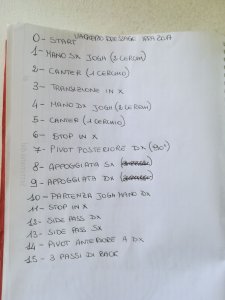 VIAGGERO DRESSAGE IPPA 2017
0- START
1- MANO SX JOGH (2 CERCHI)
2- CANTER (1 CERCHIO)
3- TRANSIZIONE IN X
4- MANO DX JOGH (2 CERCHI)
5- CANTER (1 CERCHIO)
6- STOP IN X
7- PIVOT POSTERIORE DX (90°)
8- APPOGGIATA SX
9- APPOGGIATA DX
10- PARTENZA JOGH MANO DX
11- STOP IN X
12- SIDE PASS DX
13- SIDE PASS SX
14- PIVOT ANTERIORE A DX
15- 3 PASSI DI BACK